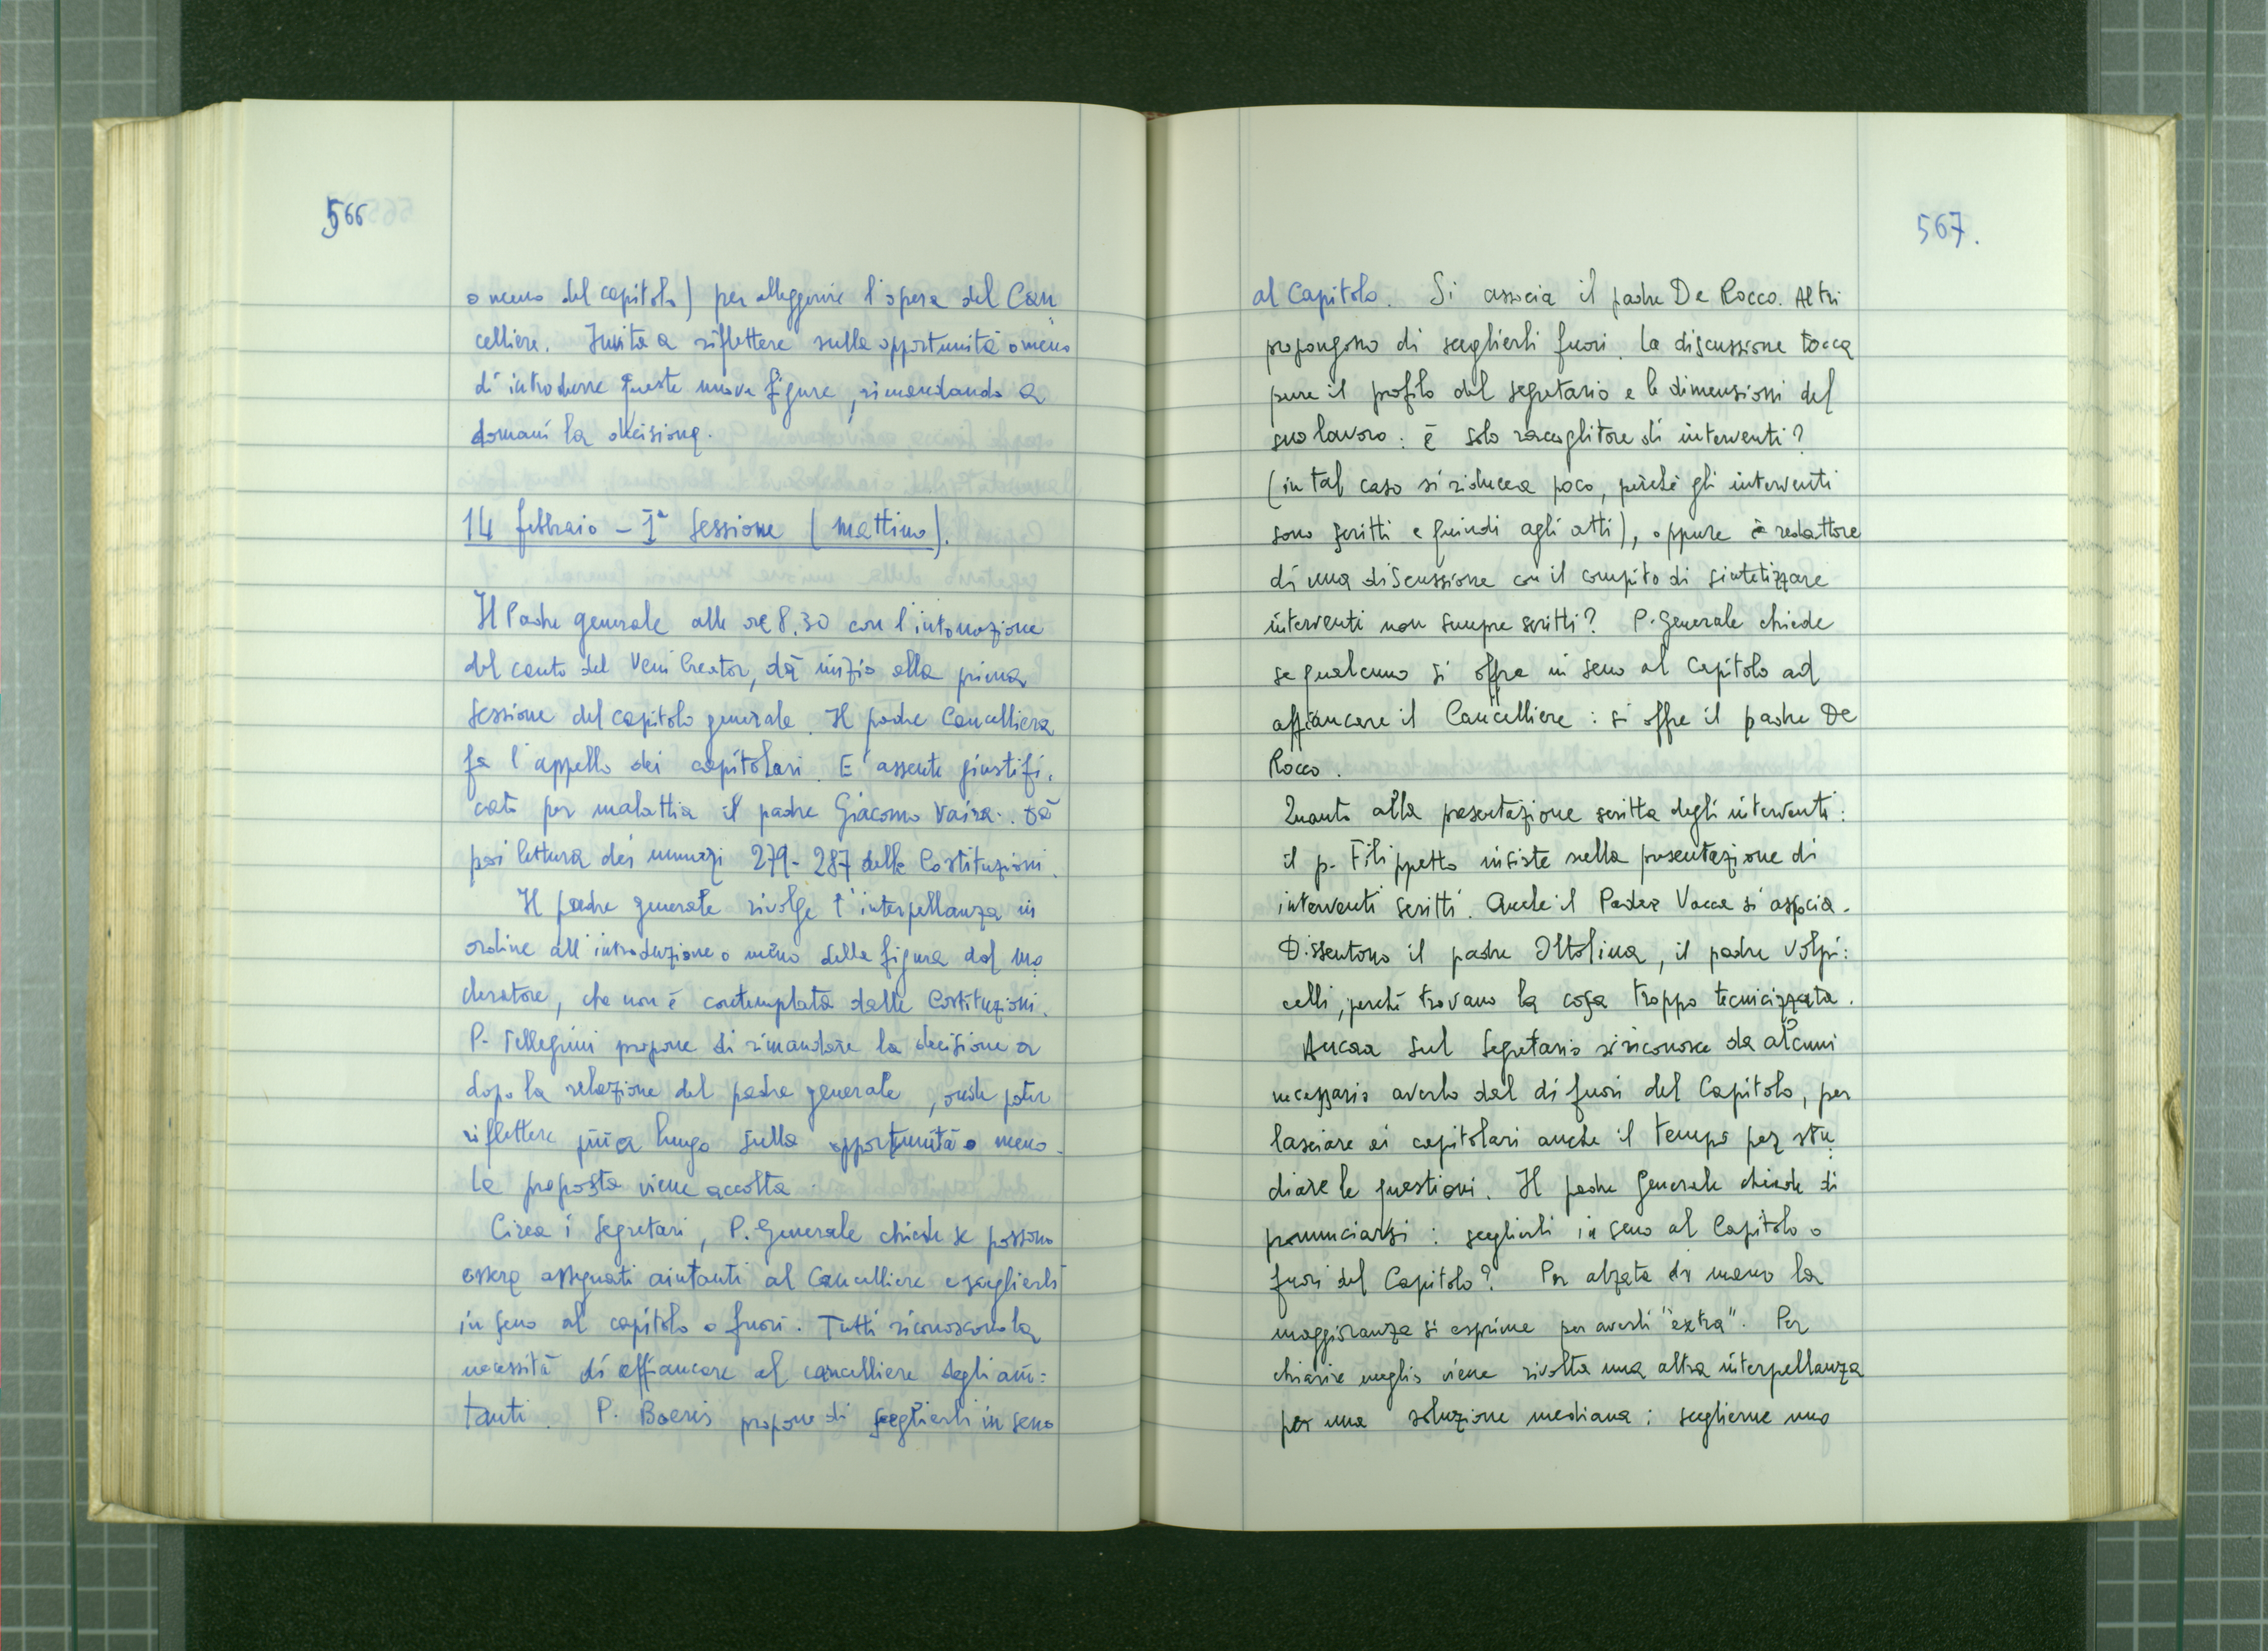 566
o meno del capitolo) per alleggerire l'opera del Can
celliere. Invita a riflettere sulla opportunità o meno
di introdurre queste nuove figure, rimandando a
domani la decisione.
14 febbraio - Iª sessione (mattino).
Il Padre generale alle ore 8.30 con l'intonazione
del canto del Veni Creator, dà inizio alla prima
sessione del capitolo generale. Il padre Cancelliere
fa l'appello dei capitolari. E' assente giustifi.
cato per malattia il padre Giacomo Vaira. Dà
poi lettura dei numeri 279-287 delle Costituzioni.
Il padre generale rivolge l'interpellanza in
ordine all'introduzione o meno della figura del mo
deratore, che non è contemplata dalle Costituzioni.
P. Pellegrini propone di rimandare la decisione a
dopo la relazione del padre generale, onde poter
riflettere più a lungo sulla opportunità o meno.
La proposta viene accolta.
Circa i segretari, P. Generale chiede se possono
essere assegnati aiutanti al Cancelliere e sceglierli
in seno al capitolo o fuori. Tutti riconoscono la
necessità di affiancare al cancelliere degli aiu:
tanti. P. Boeris propone di sceglierli in seno
567.
al Capitolo. Si associa il padre De Rocco. Altri
propongono di sceglierli fuori. La discussione tocca
pure il profilo del segretario e le dimensioni del
suo lavoro: è solo raccoglitore di interventi?
(in tal caso si riduceva poco, perchè gli interventi
sono scritti e quindi agli atti), oppure è redattore
di una discussione con il compito di sintetizzare
interventi non sempre scritti? P. Generale chiede
se qualcuno si offre in seno al Capitolo ad
affiancare il Cancelliere: si offre il padre De
Rocco.
Quanto alla presentazione scritta degli interventi:
il p. Filippetto insiste nella presentazione di
interventi scritti. Anche il Padre Vacca si associa.
Dissentono il padre Ottolina, il padre Volpi:
celli, perchè trovano la cosa troppo tecnicizzata.
Ancora sul segretario si riconosce da alcuni
necessario averlo dal di fuori del Capitolo, per
lasciare ai capitolari anche il tempo per stu
diare le questioni. Il padre Generale chiede di
pronunciarsi: sceglierli in seno al Capitolo o
fuori del Capitolo? Per alzata di mano la
maggioranza si esprime per averli "extra". Per
chiarire meglio viene rivolta una altra interpellanza
per una soluzione mediana: sceglierne uno